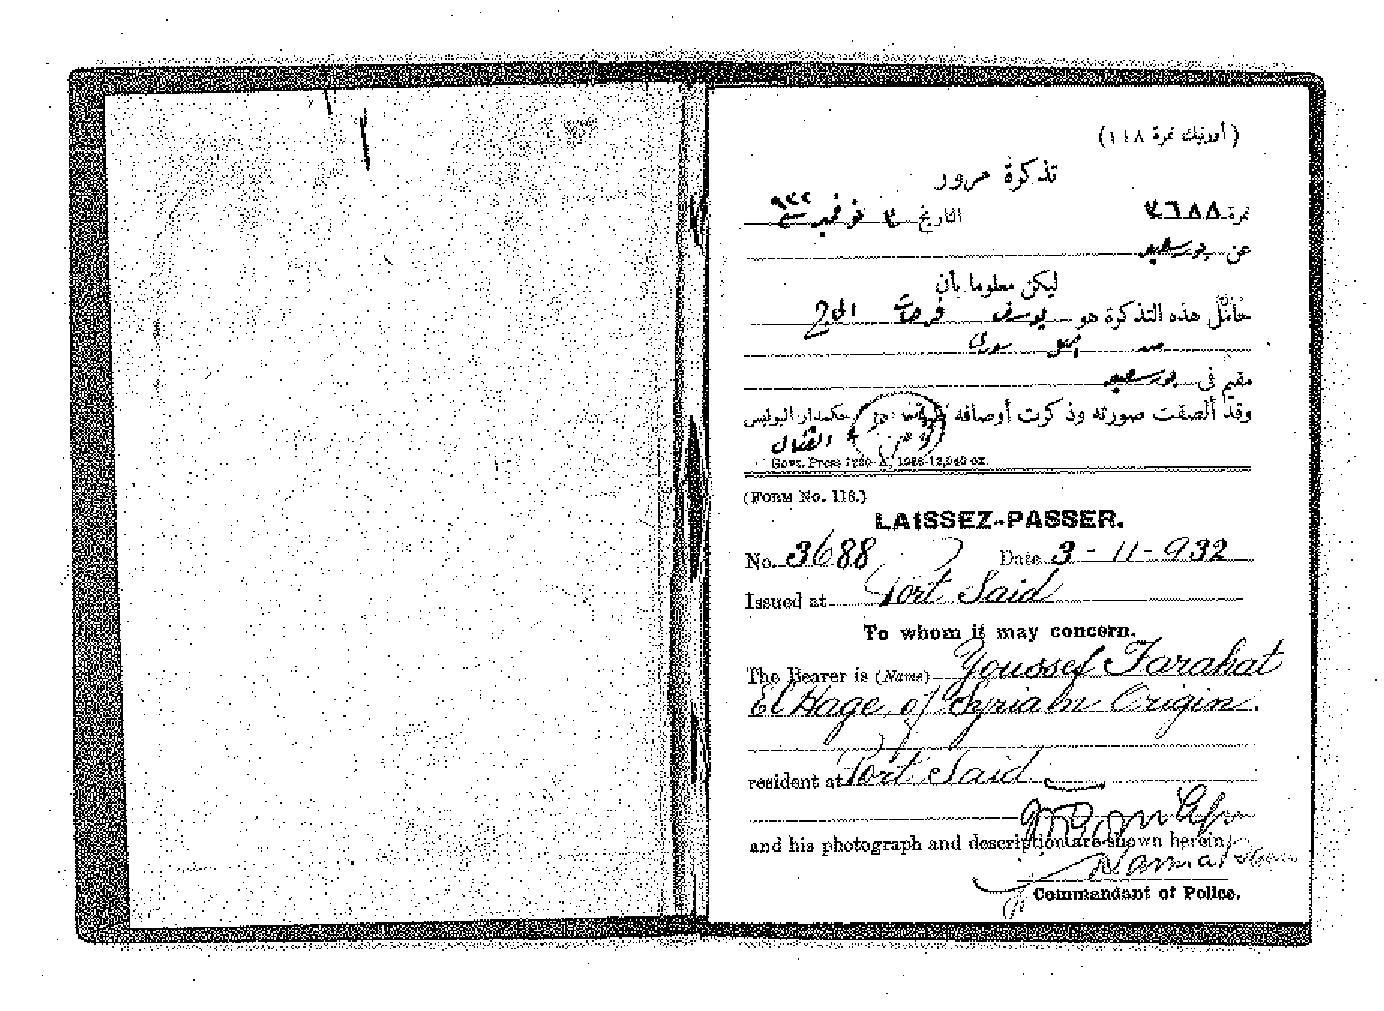 (أورنيك نمرة ١١٨)
تذكرة مرور
نمرة ٣٦٨٨ التاريخ ٣ نوفمبر سنة ٩٣٢
عن بورسعيد
ليكن معلوما بأن
حامل هذه التذكرة هو يوسف فرحات الحاج
من اصل سورى
مقيم فى بورسعيد
وقد ألصقت صورته وذكرت أوصافه حكمدار البوليس
القنال
Govt. Press
(FORM No. 118.)
LAISSEZ-PASSER.
No. 3688 Date 3-11-932
Issued at Port Said
To whom it may concern.
The Bearer is (Name) Youssef Farahat
El Hage of Syrian Origin.
resident at Port Said
and his photograph and description are shown herein
Commandant of Police.